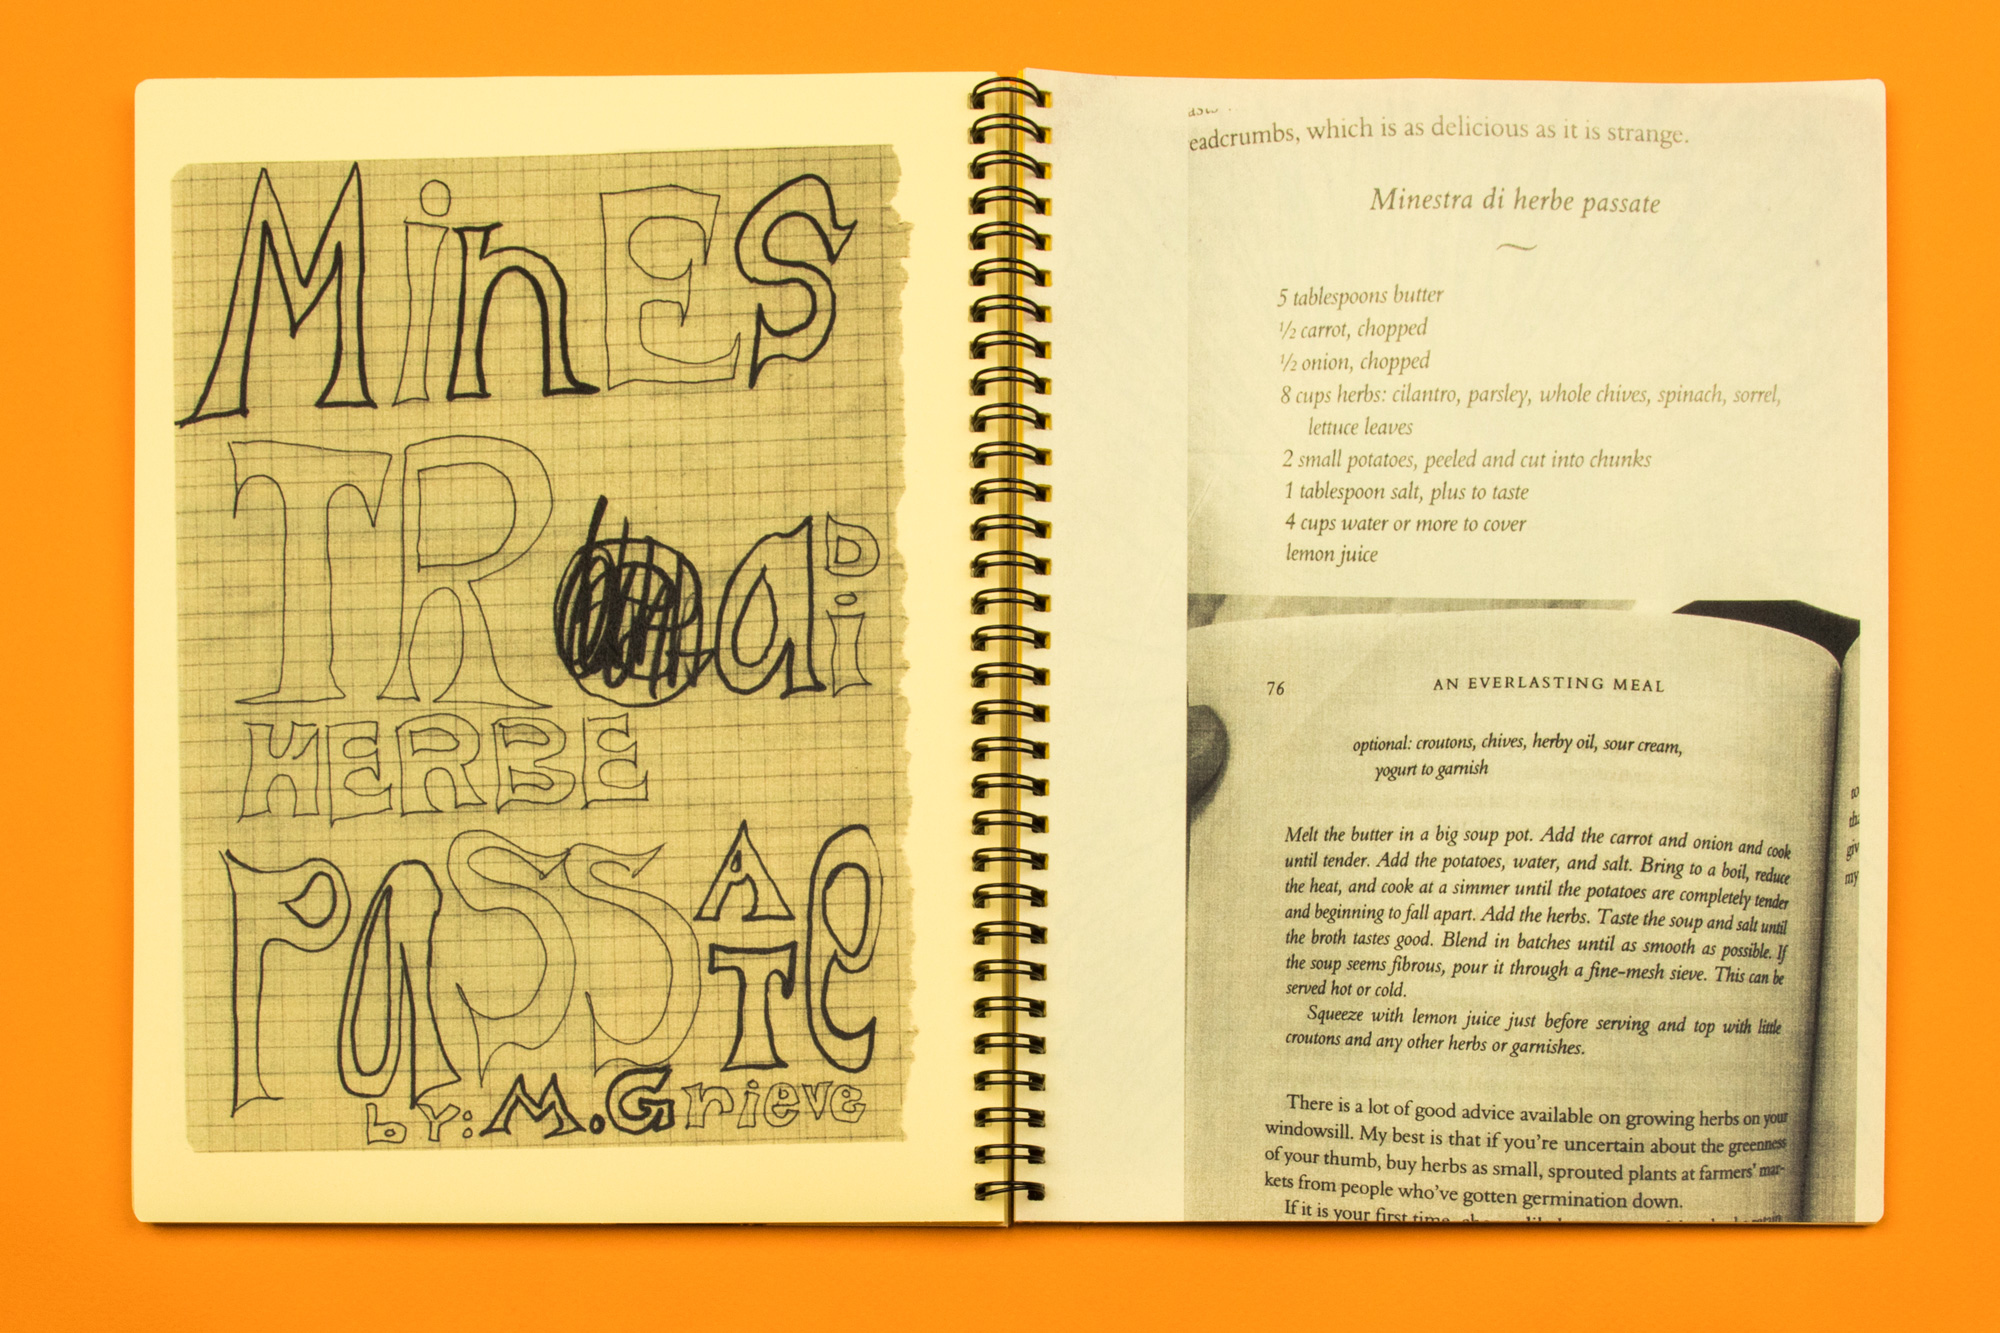 MinES
TRa Di
HERBE
PaSSATe
bY: M. Grieve
eadcrumbs, which is as delicious as it is strange.
Minestra di herbe passate
5 tablespoons butter
½ carrot, chopped
½ onion, chopped
8 cups herbs: cilantro, parsley, whole chives, spinach, sorrel,
lettuce leaves
2 small potatoes, peeled and cut into chunks
1 tablespoon salt, plus to taste
4 cups water or more to cover
lemon juice
76 AN EVERLASTING MEAL
optional: croutons, chives, herby oil, sour cream,
yogurt to garnish
Melt the butter in a big soup pot. Add the carrot and onion and cook
until tender. Add the potatoes, water, and salt. Bring to a boil, reduce
the heat, and cook at a simmer until the potatoes are completely tender
and beginning to fall apart. Add the herbs. Taste the soup and salt until
the broth tastes good. Blend in batches until as smooth as possible. If
the soup seems fibrous, pour it through a fine-mesh sieve. This can be
served hot or cold.
Squeeze with lemon juice just before serving and top with little
croutons and any other herbs or garnishes.
There is a lot of good advice available on growing herbs on your
windowsill. My best is that if you're uncertain about the greenness
of your thumb, buy herbs as small, sprouted plants at farmers' mar-
kets from people who've gotten germination down.
If it is your first time,
to
tha
giv
my